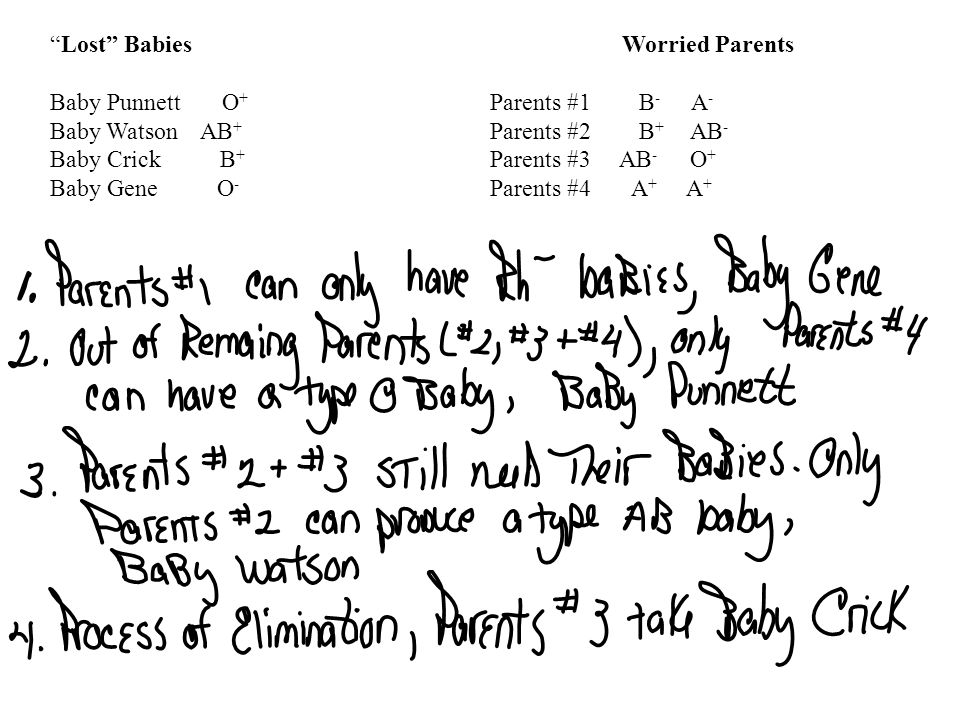 “Lost” Babies Worried Parents
Baby Punnett O+ Parents #1 B- A-
Baby Watson AB+ Parents #2 B+ AB-
Baby Crick B+ Parents #3 AB- O+
Baby Gene O- Parents #4 A+ A+
1. Parents #1 can only have Rh- babies, Baby Gene
2. Out of Remaing Parents (#2, #3 + #4), only Parents #4
can have a type O Baby, Baby Punnett
3. Parents #2 + #3 still need their Babies. Only
Parents #2 can produce a type AB baby,
Baby Watson
4. Process of Elimination, Parents #3 take Baby Crick